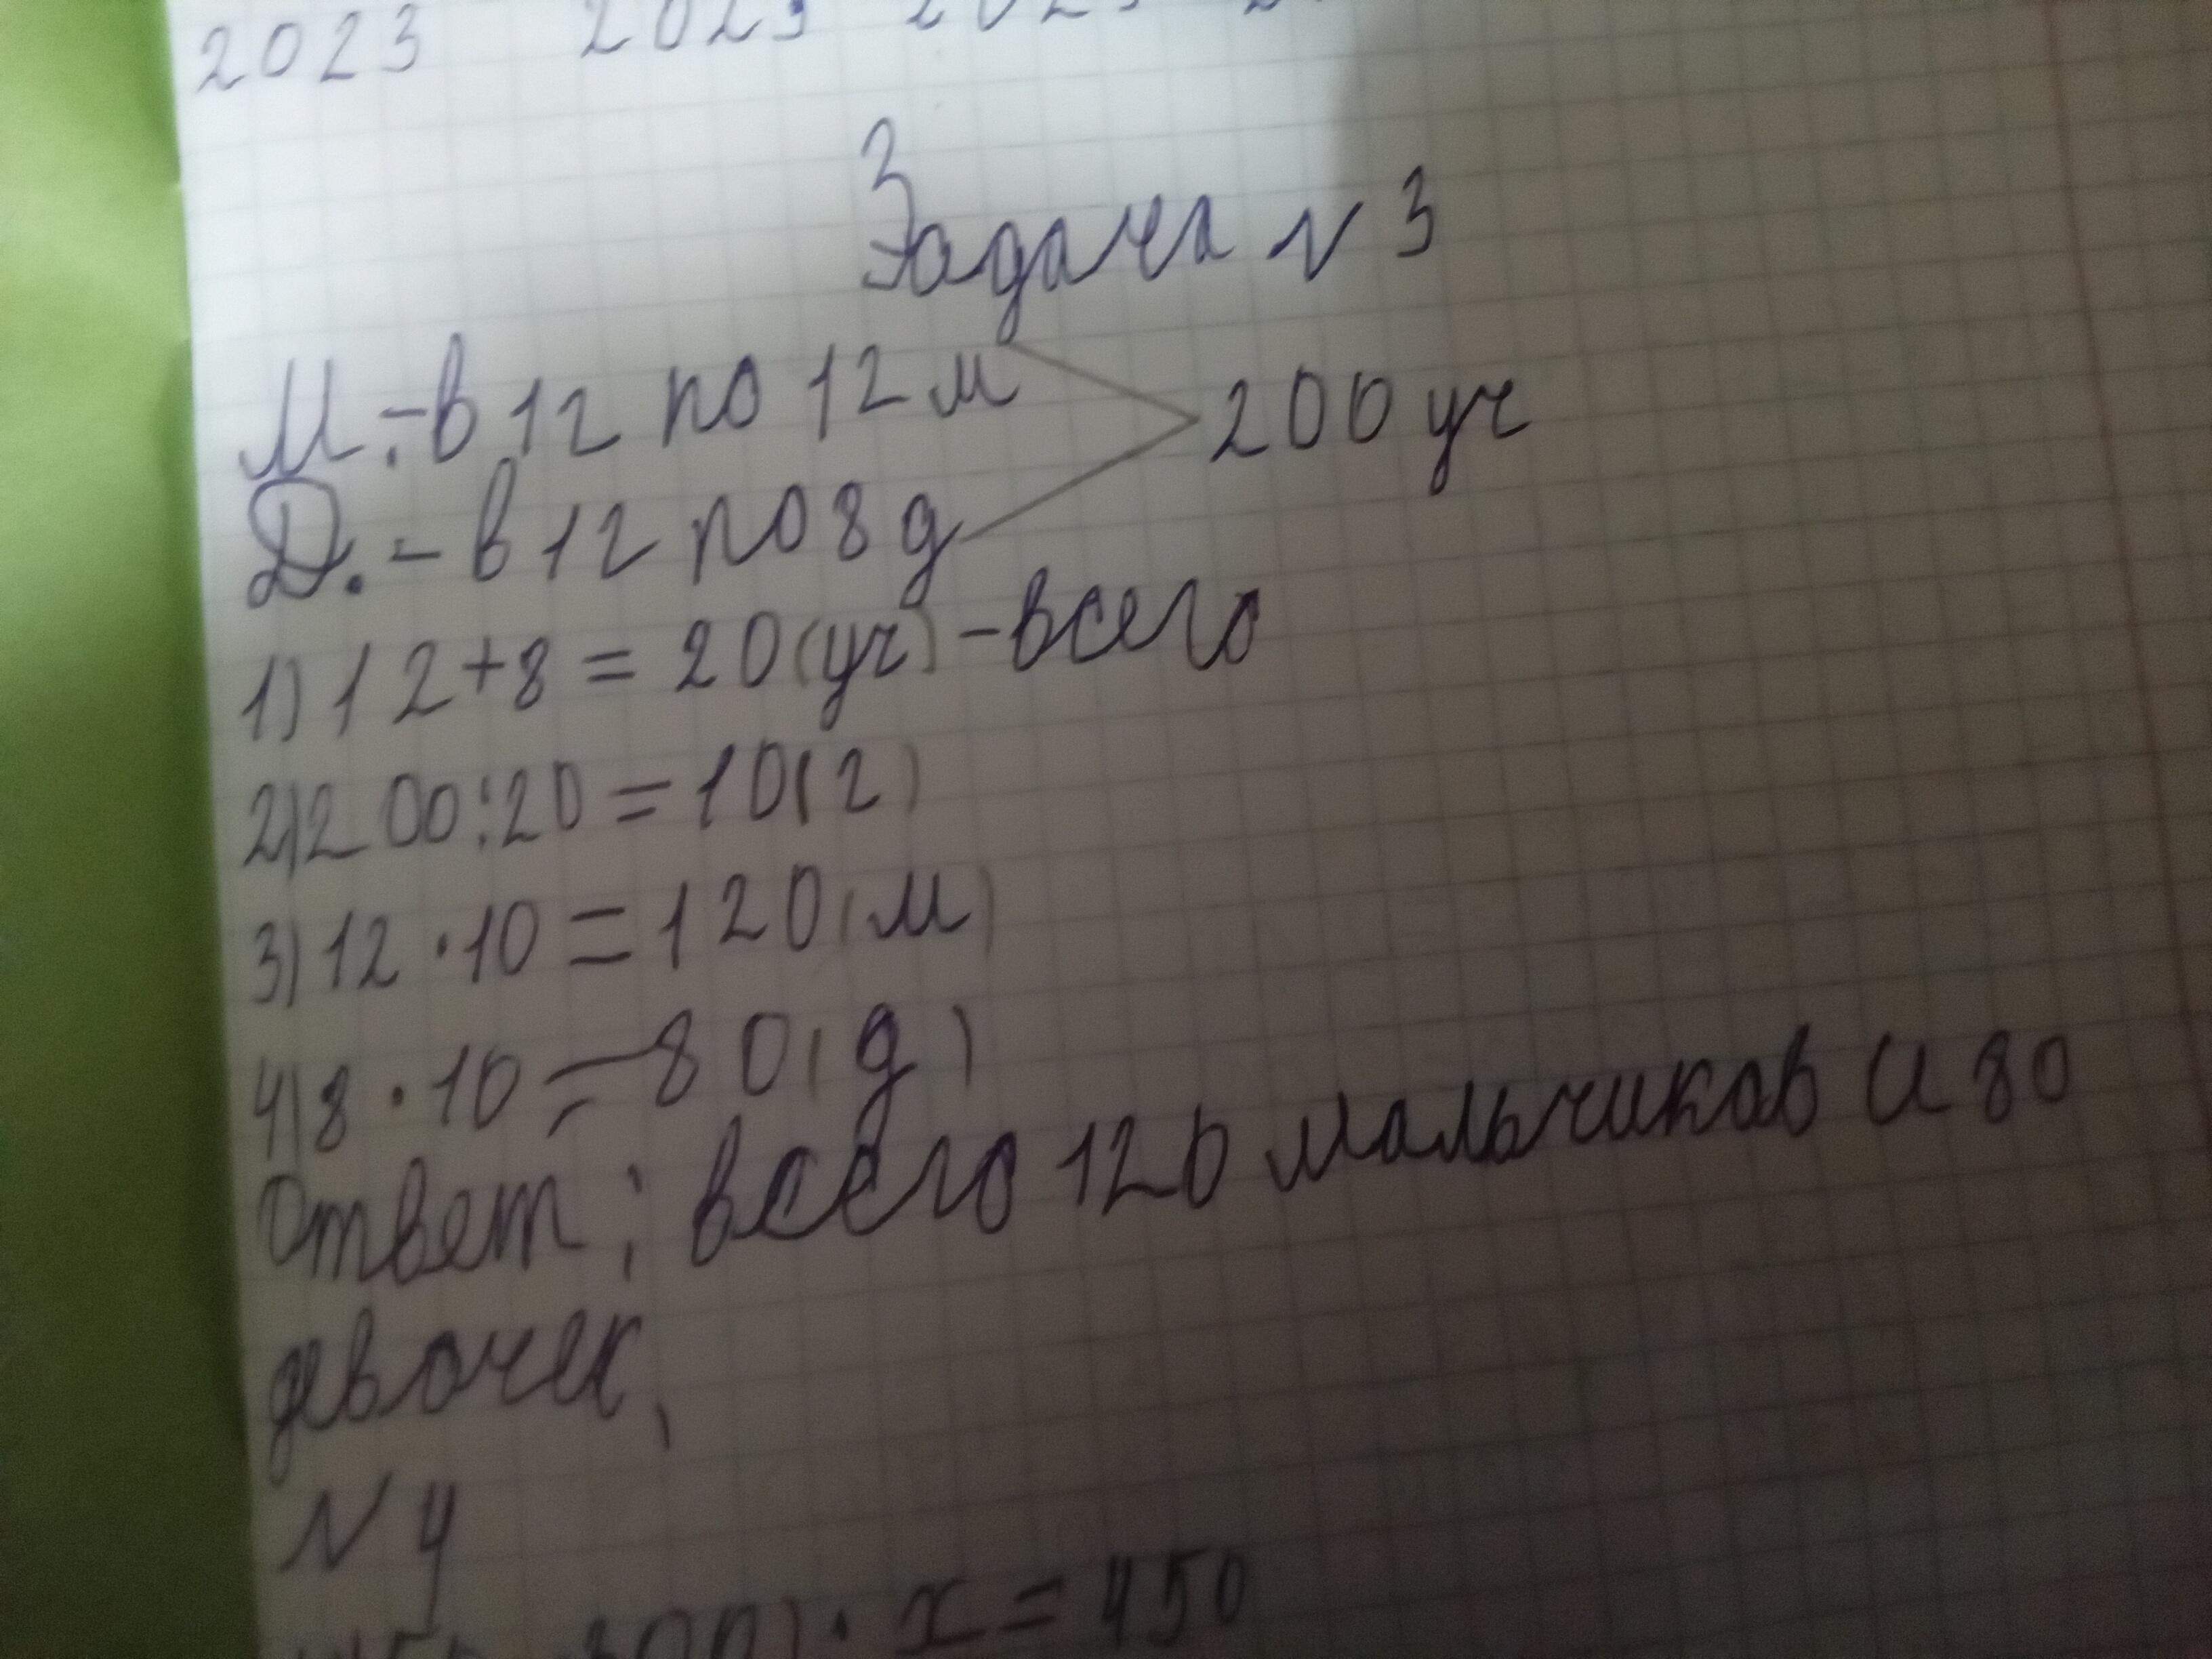 2023 2023 202
Задача N 3
М.-в 1г по 12 м
200 уч
Д.-в 1г по 8 д
1) 12+8=20(уч)-всего
2) 200:20=10(г)
3) 12·10=120(м)
4) 8·10=80(д)
Ответ: всего 120 мальчиков и 80
девочек,
N 4
· x=450